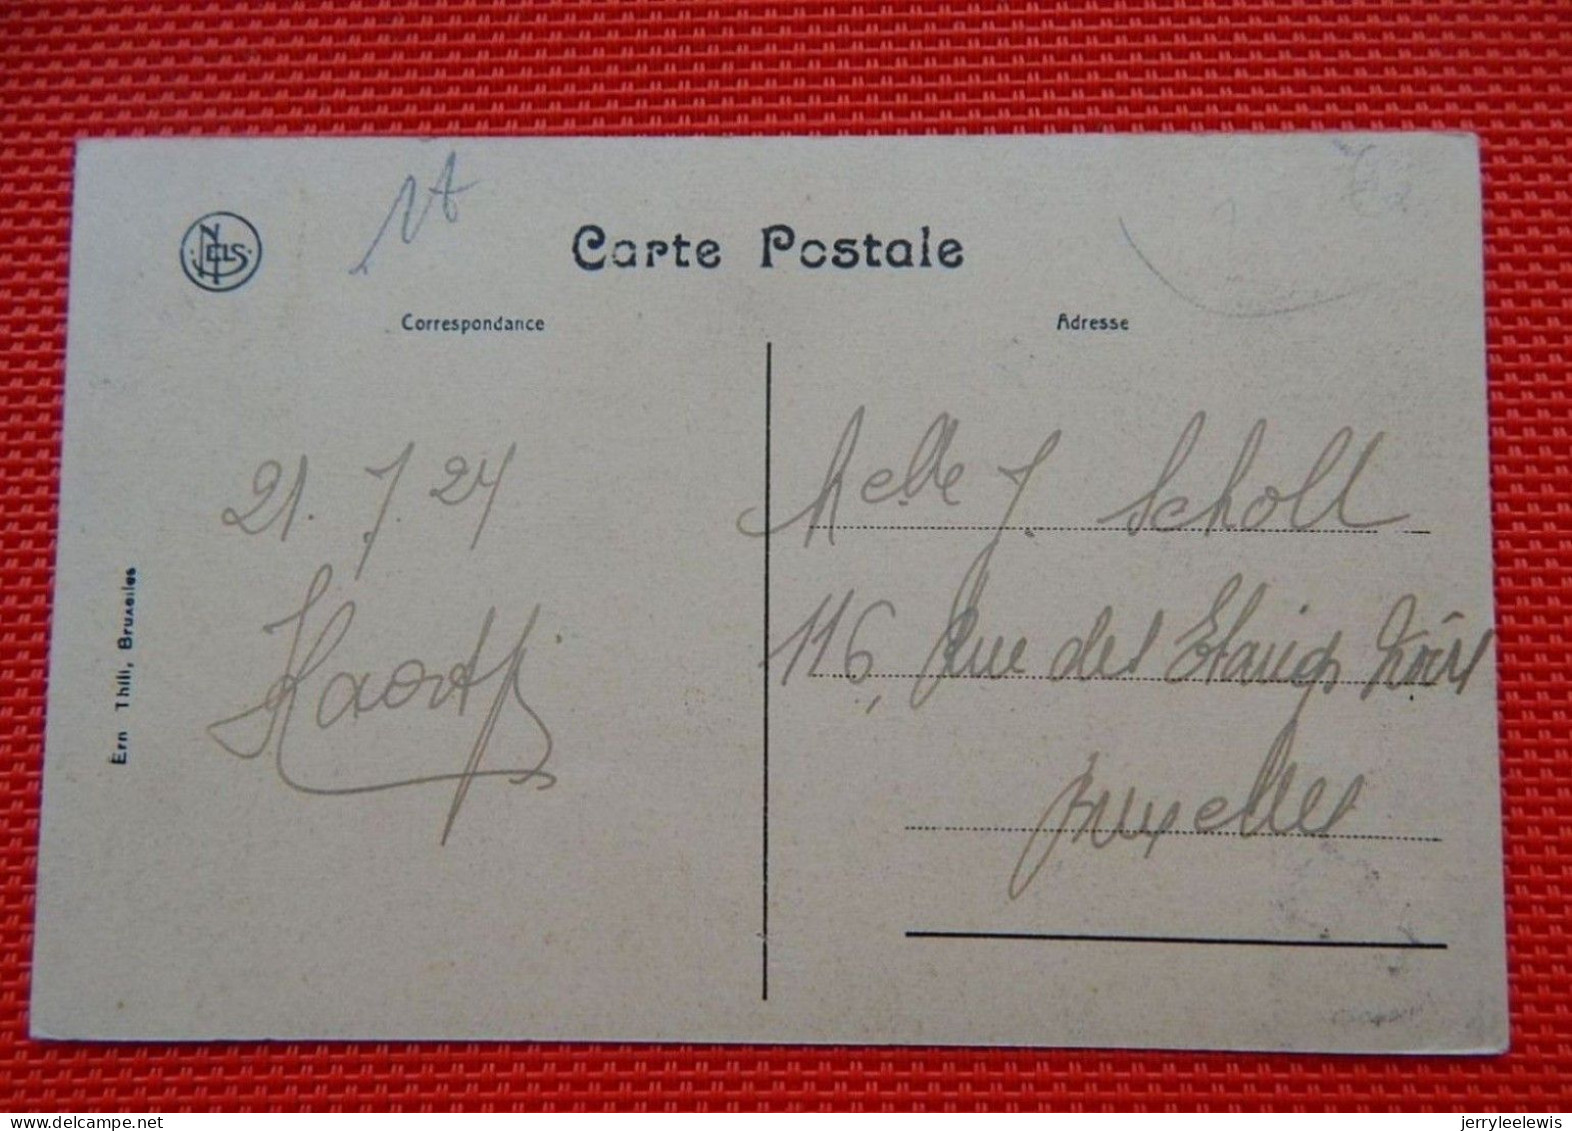 NELS
Carte Postale
Correspondance
Adresse
Ern Thill, Bruxelles
21. 7. 24
Melle J. Scholl
116, Rue des Etangs Noirs
Bruxelles
jerryleelewis